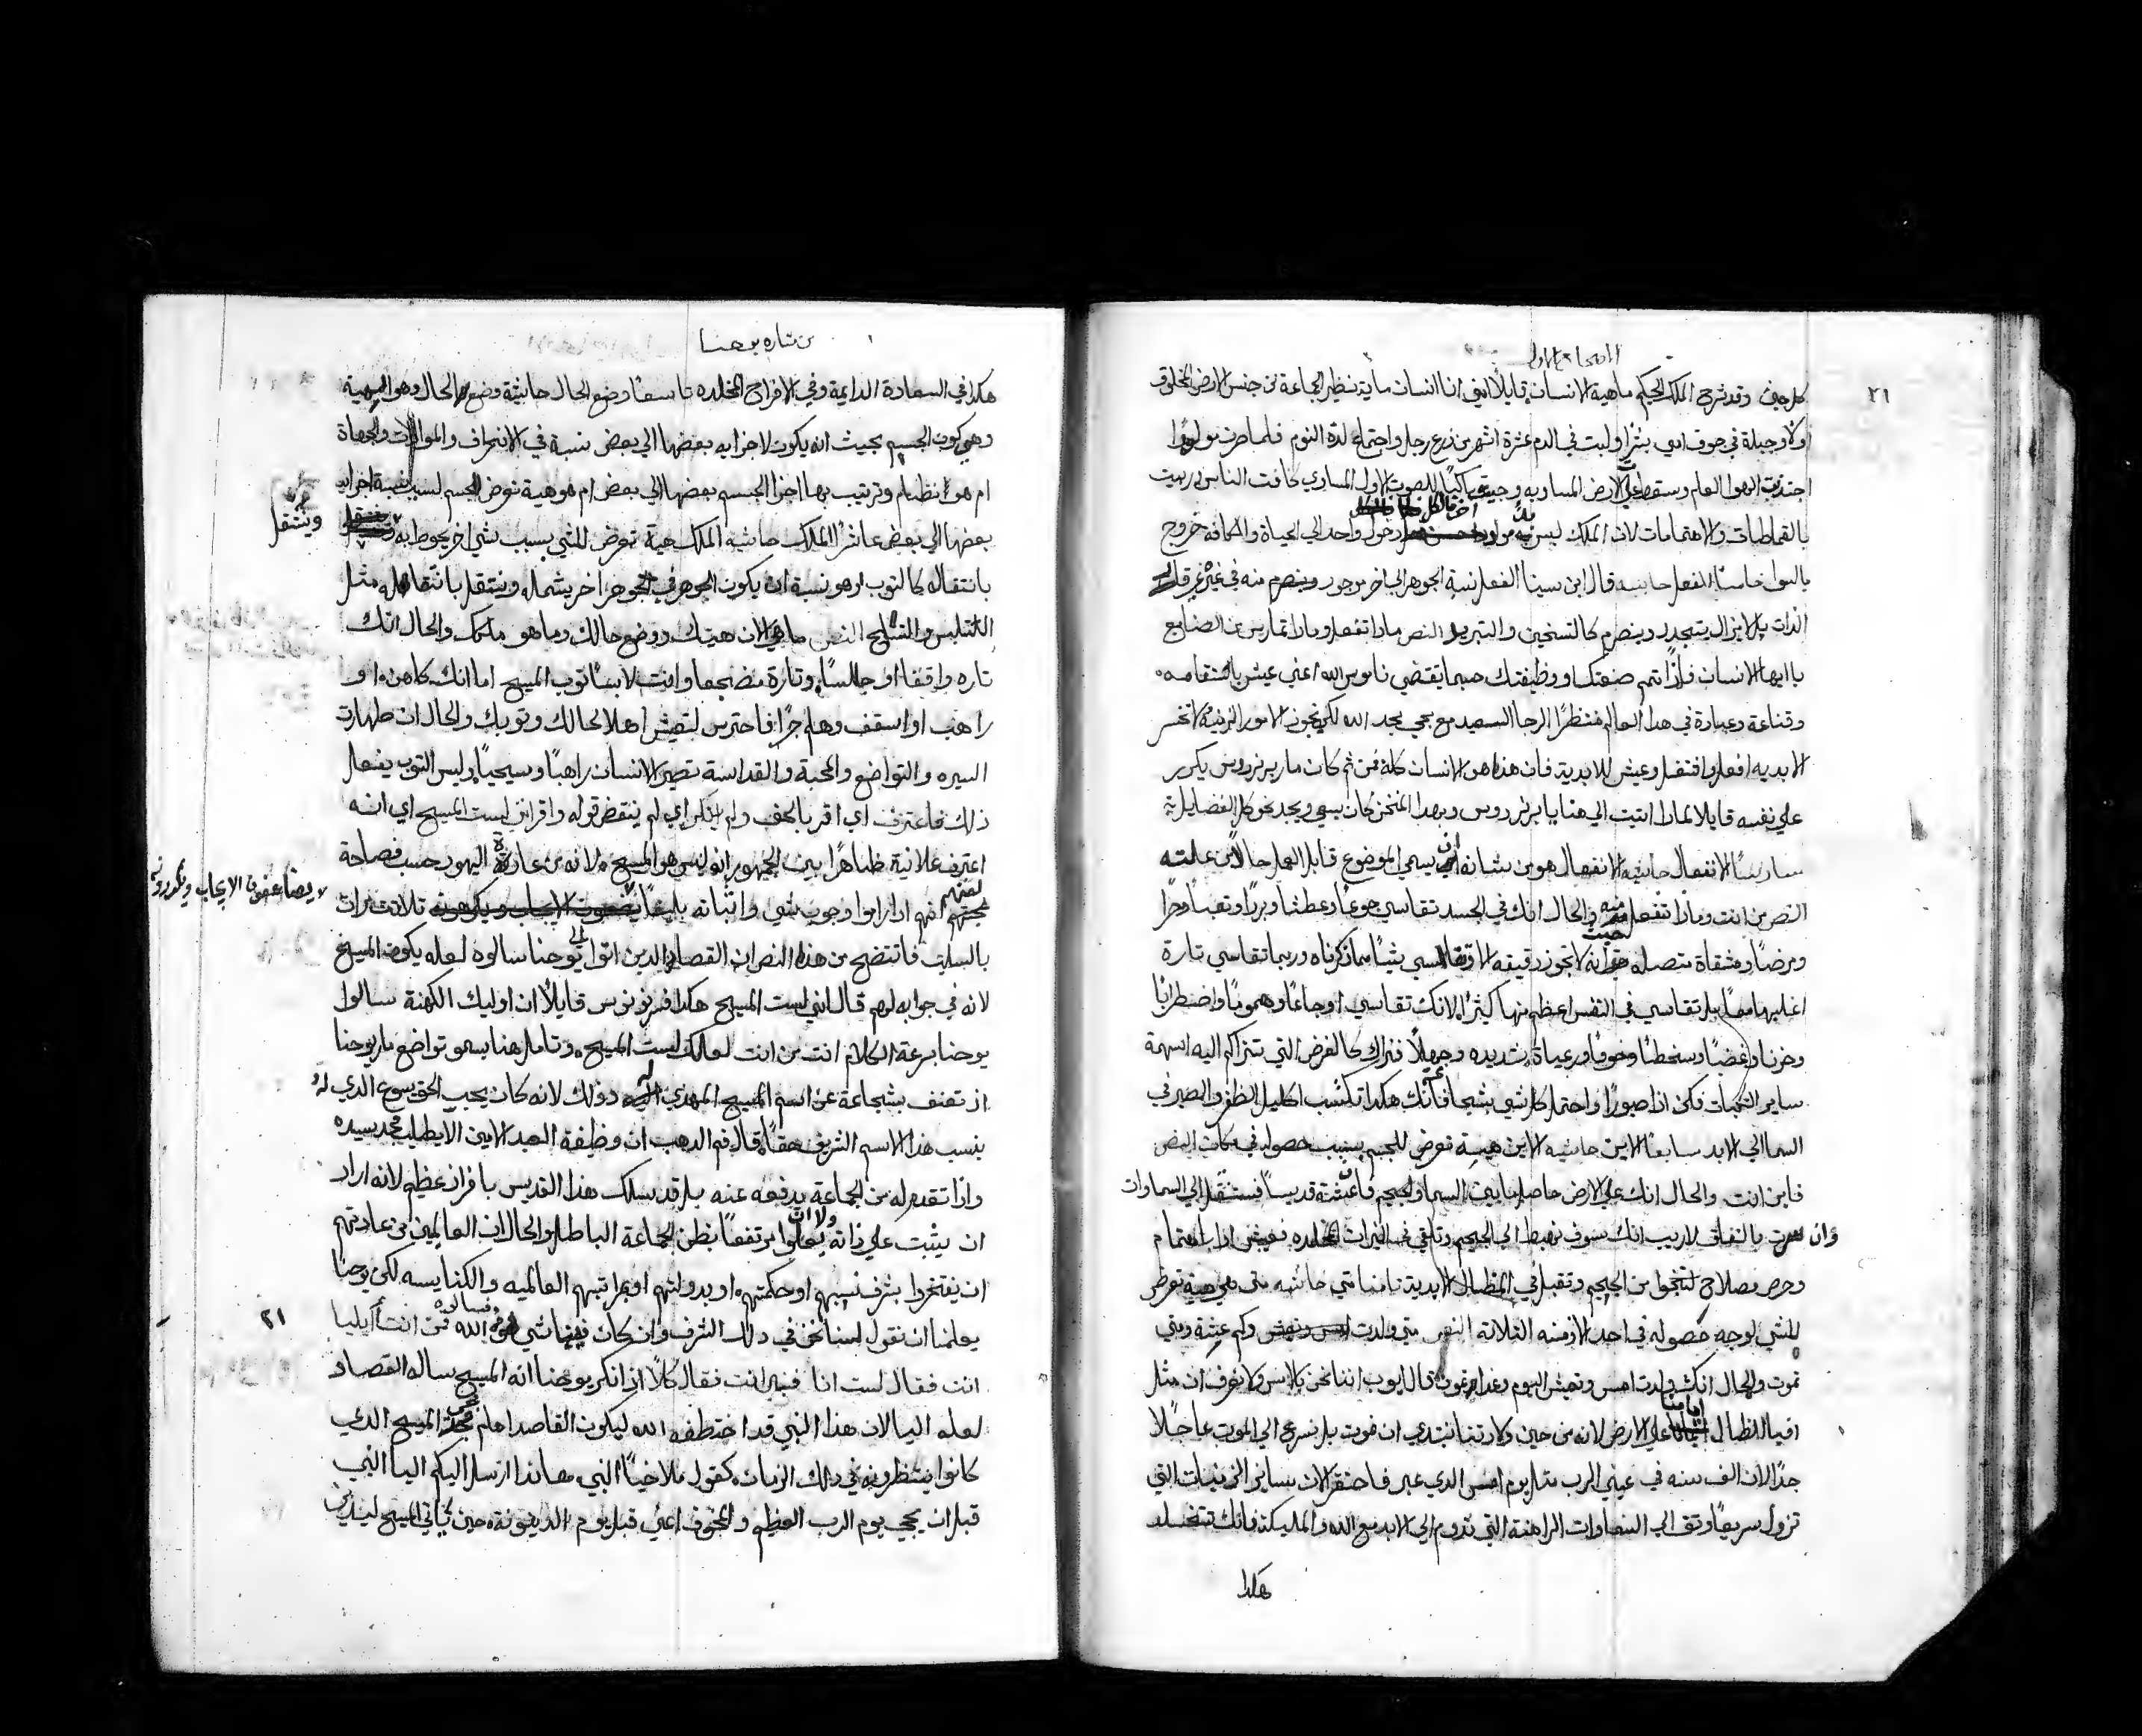 الاصحاح الاول
٢١
كل حين وقد شرح الملك الحكيم ماهية الانسان قايلاً اني انا انسان مايت نظير الجماعة من جنس الارض المخلوق
اولاً وجبلة في جوف امي بشرًا ولبت في الدم عشرة اشهر من زرع رجل واجتماع لدة النوم فلما صرت مولودًا
اجتدبت الهوا العام وسقطت علي الارض المساويه وجيت باكيًا للصوت الاول المساوي كافت الناس وربيت
بالقماطات والاهتمامات لان الملك ليس له مولد اخر فالكل دخول واحد الي الحياة والكافة خروج
بالسوا خامسًا الفعل حاشيه قال ابن سينا الفعل نسبة الجوهر الي اخر موجود منه في غيره غير قار
الذات بل لايزال يتجدد وينصرم كالتسخين والتبريد النص مادا تفعل ومادا تمارس من الصنايع
يا ايها الانسان فاذًا تمم صنعتك او وظيفتك حسبما يقتضي ناموس الله اعني عيش باستقامه
وقناعة وعبادة في هدا العالم منتظرًا الرجا السعيد مع مجي مجد الله لكي تجوز الامور الزمنية لا تخسر
الابديه افعل واقتفل وعيش للابدية فان هدا هو الانسان كله فمن ثم كان مار برنردوس يكرر
علي نفسه قايلا لمادا اتيت الي هنا يا برنردوس وبهدا المنخز كان يسعي ويجد نحو كل الفضايل
سادسًا الانفعال حاشيه الانفعال هو من شانه ان يسمي الموضوع قابل العمل حالاً من علته
النص من انت ومادا تنفعل منه والحال انك في الجسد تقاسي جوعًا وعطشًا وبردًا وتعبًا وحرًا
ومرضًا ومشقاة متصله حيث انه لا تجوز دقيقه الا وتقاسي شيًا مما ذكرناه وربما تقاسي تارة
اغلبها معًا بل تقاسي في النفس اعظم منها كثيرًا لانك تقاسي اوجاعًا وهمومًا واضطرابًا
وحزنا وغضبًا وسخطًا وخوفًا ورعباة شديده وجهلاً فنراك كالغرض التي تتراكم اليه اسهمة
ساير النكبات فكن اذًا صبورًا واحتمل كل شي بشجاعة فانك هكدا تكتسب اكليل الظفر والنصر في
السما الي الابد سابعًا الاين حاشيه الاين هيية تعرض للجسم بسبب حصوله في مكان النص
فاين انت والحال انك علي الارض حاصل ما بين السما والجحيم فان عشت قديسًا فستنتقل الي السماوات
وان سرت بالنفاق لاريب انك سوف تهبط الي الجحيم وتلقي في النيران المخلده فعيش اذًا باهتمام
وحرص وصلاح لتنجوا من الجحيم وتقبل في المظال الابدية تامنا متي حاشيه متي هي هيية تعرض
للشي لوجه حصوله في احد الازمنه التلاته النص متي ولدت وكم عشة ومتي
تموت والحال انك ولدت امس وتعيش اليوم وغدا تموت قال ايوب اننا نحن بالامس ولا نعرف ان مثل
افيا الظلال ايامنا علي الارض لانه من حين ولادتنا نبتدي ان نموت بل نسرع الي الموت عاجلا
جدًا لان الف سنه في عيني الرب مثل يوم امس الدي عبر فاحتقر الان ساير الزمنيات التي
تزول سريعًا وتق الي السعاوات الراهنة التي تدوم الي الابد مع الله والمليكة فانك تتخلد
هكدا
من بشاره يوحنا
هكدا في السعادة الدايمة وفي الافراح المخلده تاسعًا وضع الحال حاشية وضع الحال وهو الهيية
وهي كون الجسم بحيث انه يكون لاجزايه بعضها الي بعض نسبة في الانحراف والموازات والجهاة
ام هو انظام وترتيب بها اجزا الجسم بعضها الي بعض ام هو هيية تعرض للجسم لسبب نسبة اجزايه
بعضها الي بعض عاشرًا الملك حاشيه الملك هية تعرض للشي بسبب شي اخر يحوط به
وينتقل
بانتقاله كالتوب او هو نسبة ان يكون الجوهر في جوهر اخر يشمله وينتقل بانتقاله مثل
التلبس والتسلح النص ما هي الان هيتك ووضع حالك وما هو ملكك والحال انك
تاره واقفًا او جالسًا وتارة منضجعا وانت لابسًا توب المسيح اما انك كاهن او
راهب او اسقف وهلم جرًا فاحترس لتعيش اهلا لحالك وتوبك والحال ان طهارت
السيره والتواضع والمحبة والقداسة تصير الانسان راهبًا ومسيحيًا وليس التوب يفعل
ذلك فاعترف اي اقر بالحق ولم ينكر اي لم ينقض قوله واقر اني لست المسيح اي انه
اعترف علانية ظاهرًا بين الجمهور انه ليس هو المسيح لانه من عادة اليهود حسب فصاحة
لغتهم انهم اذا رادوا وجوب شي واثباته بليغًا تلات مرات
لا يضاعفون الايجاب ويكررونه
بالسلب فاتضح من هدا النص ان القصاد الدين اتوا الي يوحنا سالوه لعله يكون المسيح
لانه في جوابه لهم قال اني لست المسيح هكدا قايلاً ان اوليك الكهنة سالوا
يوحنا بسرعة الكلام انت من انت لعلك لست المسيح وتامل هنا بسمو تواضع مار يوحنا
اذ تعنف بشجاعة عن اسم المسيح المهدي له ودلك لانه كان يحب الحق يسوع الدي له
ينسب هدا الاسم الشريف حقًا قال فم الدهب ان وظيفة العبد الامين الا يطلب مجد سيده
واذا تقدم له من الجماعة يدفعه عنه بل قد سلك هدا القديس بافراز عظيم لانه اراد
ان يثبت علي ذاته ولا ان يعلوا مرتفعًا بظن الجماعة الباطل والحال ان العالمين من عادتهم
ان يفتخروا بشرف نسبهم او حكمتهم او بدولتهم او بمراتبهم العالميه والكنايسه لكن يوحنا
يعلمنا ان نقول لسنا نحن في دلك الشرف وان كان فينا شي فهو من الله فسالوه فمن انت أيليا
٢١
انت فقال لست انا فنبي انت فقال كلاً اذ انكر يوحنا انه المسيح ساله القصاد
لعله اليا لان هدا النبي قد اختطفه الله ليكون القاصد امام مجي المسيح الدي
كانوا ينتظرونه في دلك الزمان كقول ملاخيا النبي هاندا ارسل اليكم اليا النبي
قبل ان يجي يوم الرب العظيم والمخوف اعني قبل يوم الدينونة حين ياتي المسيح ليدين